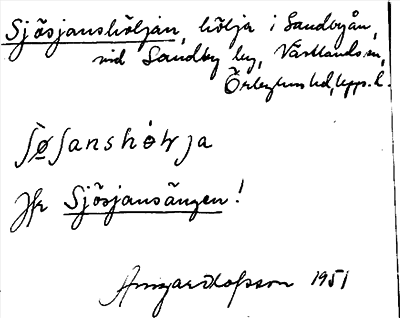 Sjösjanshöljan, hölja i Sandbyån,
vid Sandby by, Västlands sn,
Örbyhus hd, Upps. l.
ʃø̠ʃanshö̀lja
Jfr Sjösjansängen!
Olofsson 1951